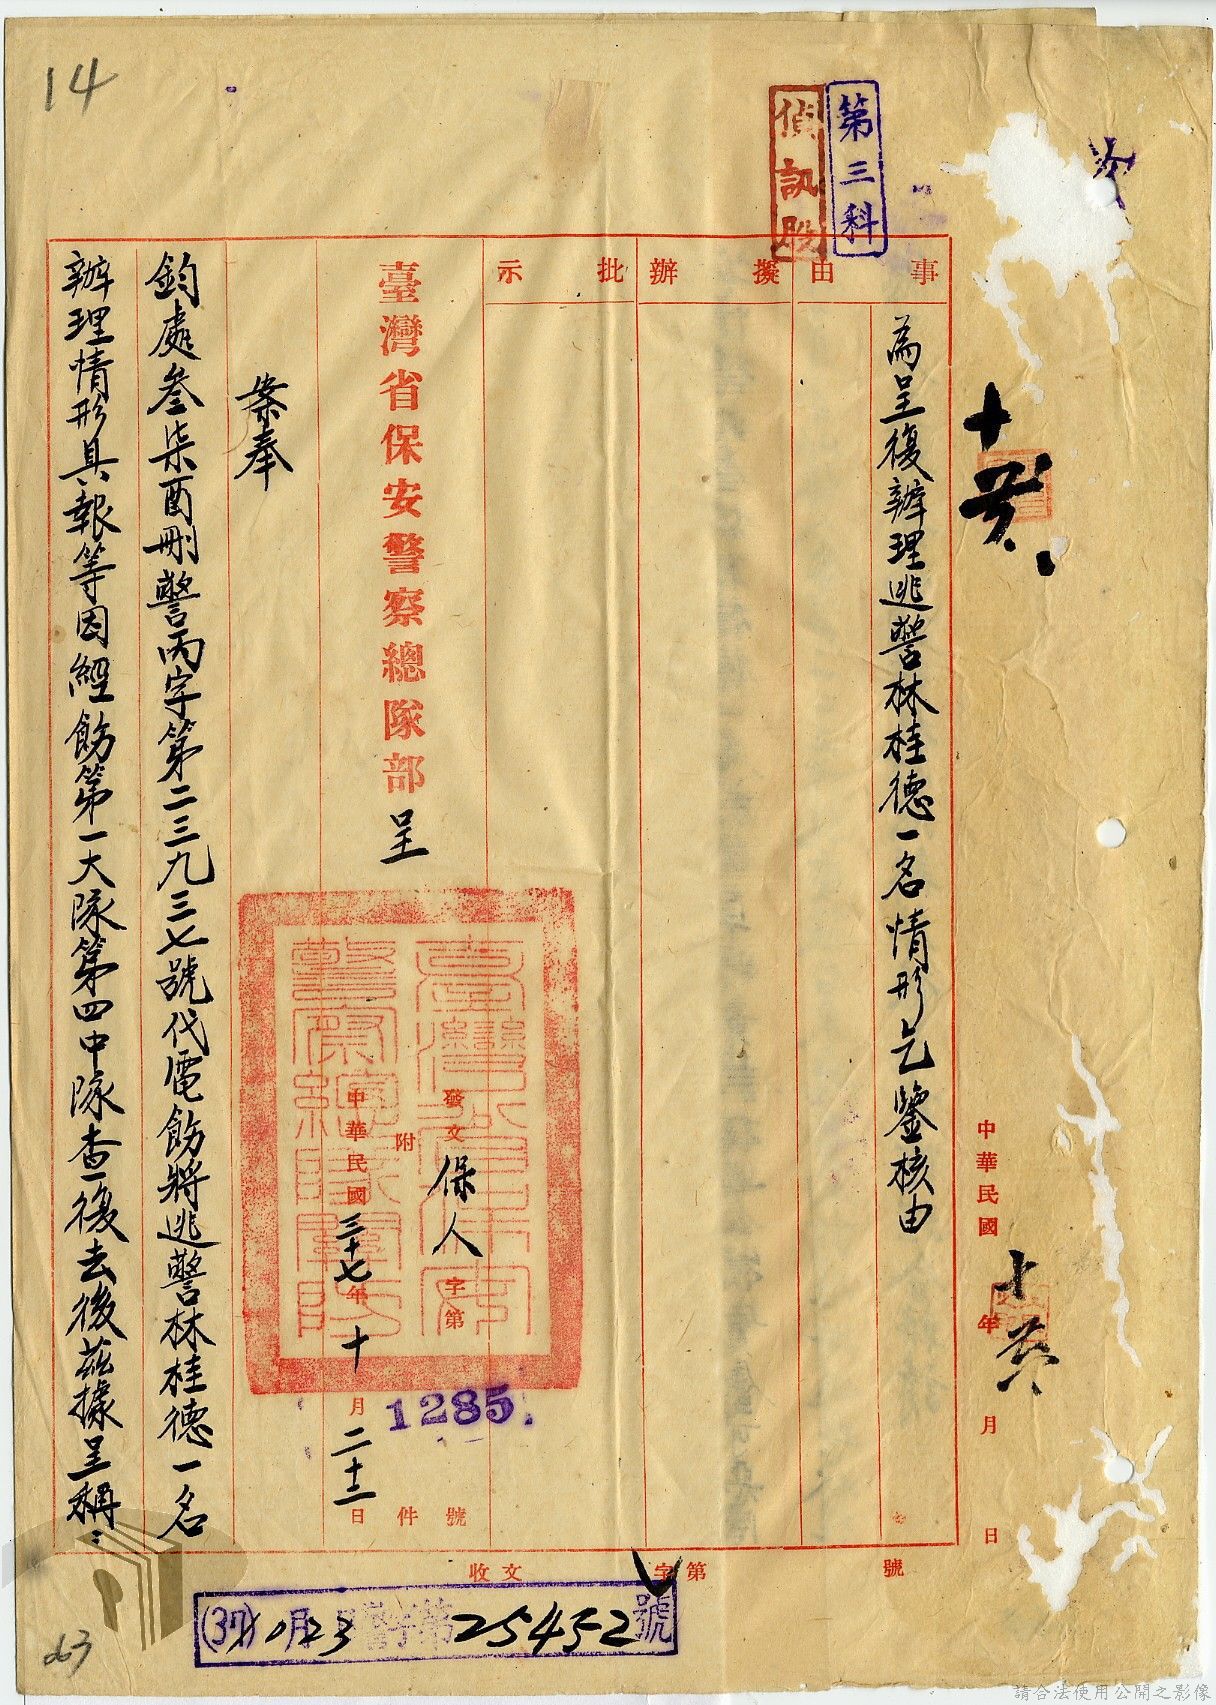 14
第三科
偵訊股
事由
擬辦
批示
為呈復辦理逃警林桂德一名情形乞鑒核由
臺灣省保安警察總隊部 呈
發文 保人 字第 1285 號
附 件
中華民國三十七年十月二十二日
案奉
鈞處叁柒酉刪警丙字第二三九三七號代電飭將逃警林桂德一名
辦理情形具報等因經飭第一大隊第四中隊查復去後茲據呈稱：
中華民國 年 月 日
收文 字第 號
(37)10月23日 警 字第25452號
063
請合法使用公開之影像